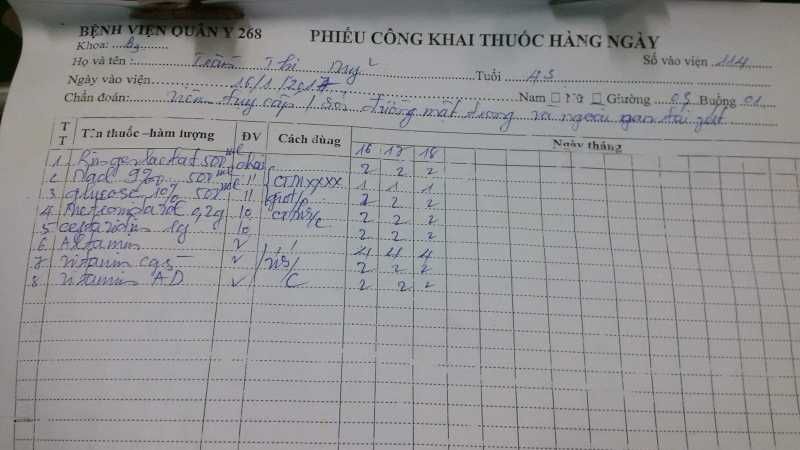 BỆNH VIỆN QUÂN Y 268
PHIẾU CÔNG KHAI THUỐC HÀNG NGÀY
Khoa: B9
Số vào viện 114
Họ và tên : Trần Thị
Tuổi 43
Ngày vào viện 16/1/2017
Nam □ Nữ □ Giường 03 Buồng 01
Chẩn đoán: Viêm tụy cấp / Sỏi đường mật trong và ngoài gan túi mật
TT Tên thuốc –hàm lượng ĐV Cách dùng Ngày tháng
16 17 18
1 Ringerlactat 500ml chai 2 2 2
2 Nacl 9‰ 500ml " CTM xxxx 1 1 1
3 glucose 10% 500ml " giọt/p 2 2 2
4 0,2g lọ 2 2 2
5 1g lọ 2 2 2
6 v 4 4 4
7 vitamin v 2 2 2
8 vitamin AD v 2 2 2